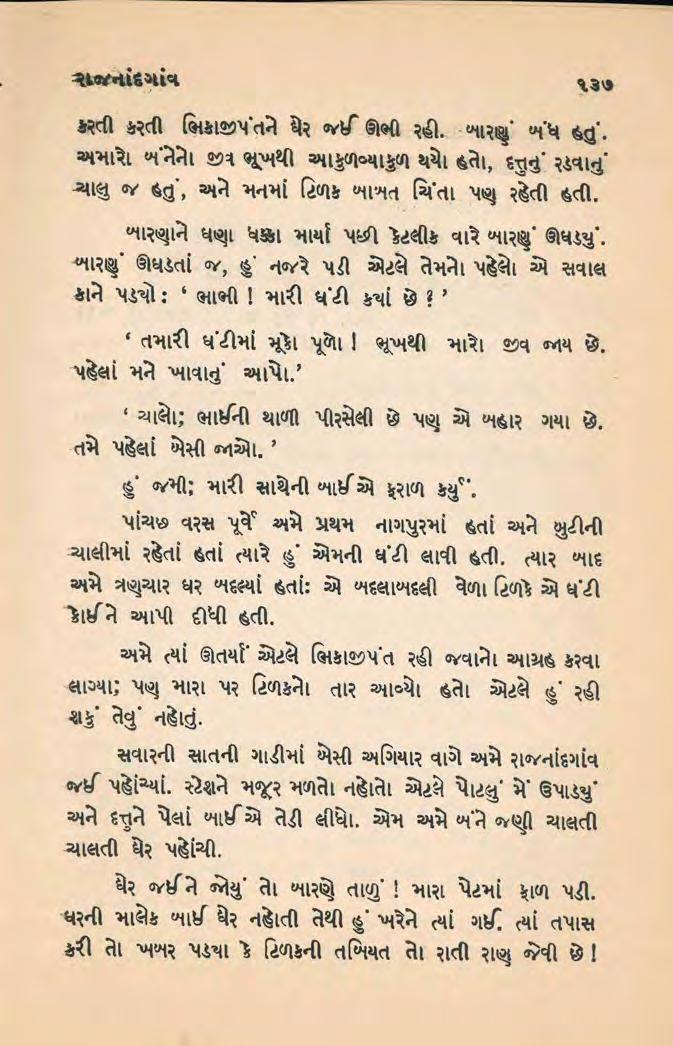 રાજનાંદગાંવ
૧૩૭
કરતી કરતી ભિકાજીપંતને ઘેર જઈ ઊભી રહી. બારણું બંધ હતું.
અમારો બંનેનો જીવ ભૂખથી આકુળવ્યાકુળ થયો હતો, દત્તુનું રડવાનું
ચાલુ જ હતું, અને મનમાં ટિળક બાબત ચિંતા પણ રહેતી હતી.
બારણાને ઘણા ધક્કા માર્યા પછી કેટલીક વારે બારણું ઊઘડયું.
બારણું ઊઘડતાં જ, હું નજરે પડી એટલે તેમનો પહેલો એ સવાલ
કાને પડયો : ‘ ભાભી ! મારી ઘંટી કયાં છે ? ’
‘ તમારી ઘંટીમાં મૂકો પૂળો ! ભૂખથી મારો જીવ જાય છે.
પહેલાં મને ખાવાનું આપો.’
‘ ચાલો; ભાઈની થાળી પીરસેલી છે પણ એ બહાર ગયા છે.
તમે પહેલાં બેસી જાઓ. ’
હું જમી; મારી સાથેની બાઈએ ફરાળ કર્યું.
પાંચછ વરસ પૂર્વે અમે પ્રથમ નાગપુરમાં હતાં અને બુટીની
ચાલીમાં રહેતાં હતાં ત્યારે હું એમની ઘંટી લાવી હતી. ત્યાર બાદ
અમે ત્રણચાર ઘર બદલ્યાં હતાં: એ બદલાબદલી વેળા ટિળકે એ ઘંટી
કોઈને આપી દીધી હતી.
અમે ત્યાં ઊતર્યાં એટલે ભિકાજીપંત રહી જવાનો આગ્રહ કરવા
લાગ્યા; પણ મારા પર ટિળકનો તાર આવ્યો હતો એટલે હું રહી
શકું તેવું નહોતું.
સવારની સાતની ગાડીમાં બેસી અગિયાર વાગે અમે રાજનાંદગાંવ
જઈ પહોંચ્યાં. સ્ટેશને મજૂર મળતો નહોતો એટલે પોટલું મેં ઉપાડયું
અને દત્તુને પેલાં બાઈએ તેડી લીધો. એમ અમે બંને જણી ચાલતી
ચાલતી ઘેર પહોંચી.
ઘેર જઈને જોયું તો બારણે તાળું ! મારા પેટમાં ફાળ પડી.
ઘરની માલેક બાઈ ઘેર નહોતી તેથી હું ખરેને ત્યાં ગઈ. ત્યાં તપાસ
કરી તો ખબર પડયા કે ટિળકની તબિયત તો રાતી રાણ જેવી છે !